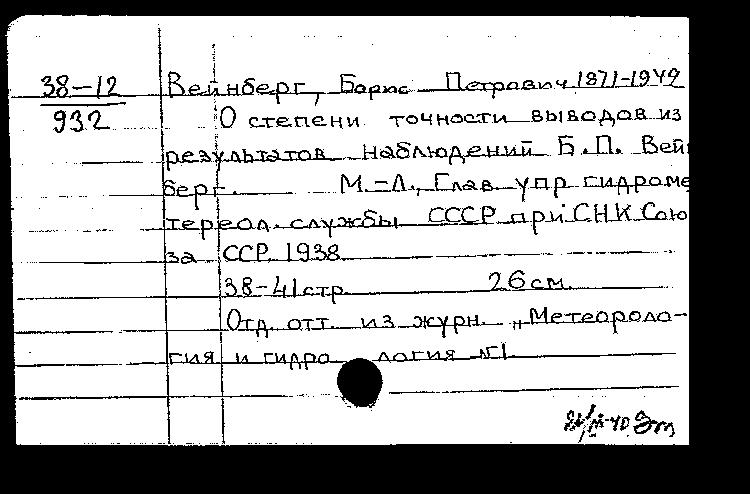 38-12
932
Вейнберг, Борис Петрович 1871-1949
О степени точности выводов из
результатов наблюдений Б.П. Вейн
берг. М.-Л., Глав упр гидроме
тереол. службы СССР при СНК Сою
за ССР. 1938
38-41 стр. 26 см.
Отд. отт. из журн. „Метеороло-
гия и гидро логия №1